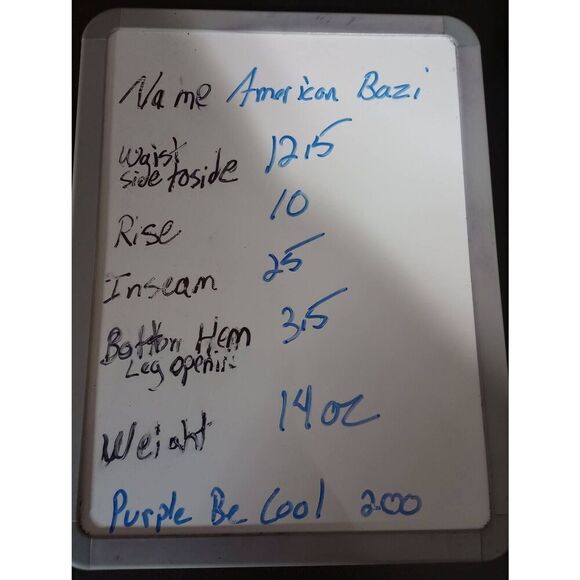 Name American Bazi
Waist side to side 12.5
Rise 10
Inseam 25
Bottom Hem Leg opening 3.5
Weight 14 oz
Purple Be Cool 2.00